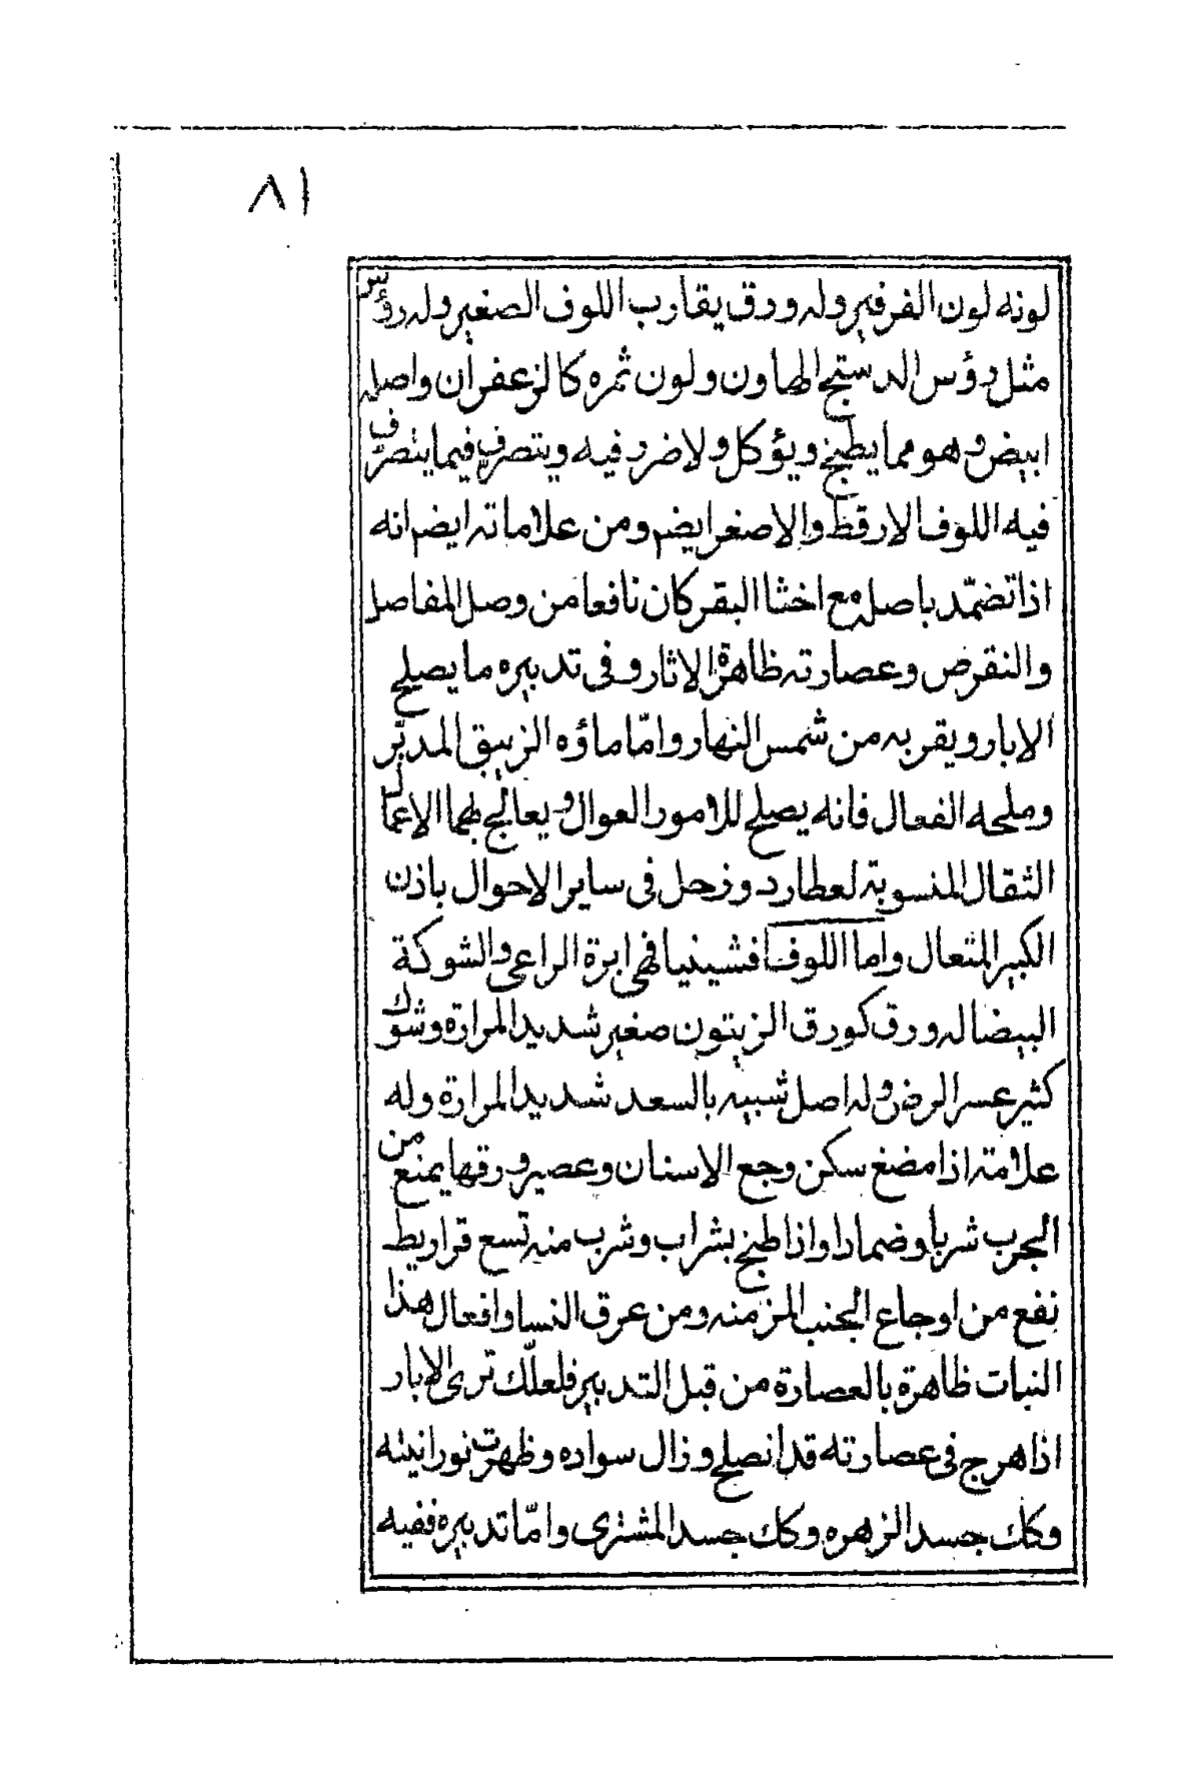 ٨١
لونه لون الفرفير وله ورق يقارب اللوف الصغير وله رؤس
مثل رؤس الدستج الهاون ولون ثمره كالزعفران واصله
ابيض وهو مما يطبخ ويؤكل ولا ضرر فيه ويتصرف فيما يتصرف
فيه اللوف الارقط والاصغر ايضم ومن علاماته ايضم انه
اذا تضمّد باصله مع اخثا البقر كان نافعا من وصل المفاصل
والنقرض وعصارته ظاهرة الاثار وفى تدبيره ما يصلح
الابار ويقربه من شمس النهار وامّا ماؤه الزيبق المدبّر
وملحه الفعال فانه يصلح للامور العوال ويعالج بهما الاعمال
الثقال المنسوبة لعطارد وزحل فى ساير الاحوال باذن
الكبير المتعال واما اللوف افشينيا فهى ابرة الراعى والشوكة
البيضا له ورق كورق الزيتون صغير شديد المرارة وشوك
كثير عسر الرض وله اصل شبيه بالسعد شديد المرارة وله
علامة اذا مضغ سكن وجع الاسنان وعصير ورقها يمنع من
الجرب شربا وضمادا واذا طبخ بشراب وشرب منه تسع قراريط
نفع من اوجاع الجنب المزمنه ومن عرق النسا وافعال هذا
النبات ظاهرة بالعصارة من قبل التدبير فلعلّك ترى الابار
اذا هرج فى عصارته قد انصلح وزال سواده وظهرت نورانيته
وكك جسد الزهره وكك جسد المشترى وامّا تدبيره ففيه